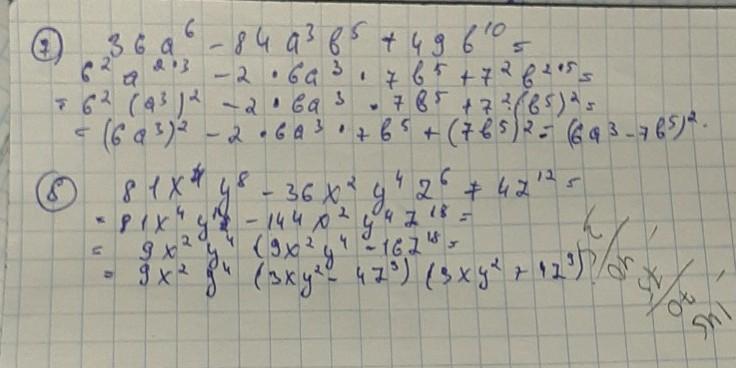 7) 36a⁶ - 84a³b⁵ + 49b¹⁰ =
6² a²·³ - 2 · 6a³ · 7b⁵ + 7² b²·⁵ =
= 6² (a³)² - 2 · 6a³ · 7b⁵ + 7² (b⁵)² =
= (6a³)² - 2 · 6a³ · 7b⁵ + (7b⁵)² = (6a³ - 7b⁵)².
8) 81x⁴ y⁸ - 36x² y⁴ z⁶ + 4z¹² =
= 81x⁴ y⁸ - 144x² y⁴ z¹⁸ =
= 9x² y⁴ (9x² y⁴ - 16z¹⁸ =
= 9x² y⁴ (3xy² - 4z⁹) (3xy² + 4z⁹)